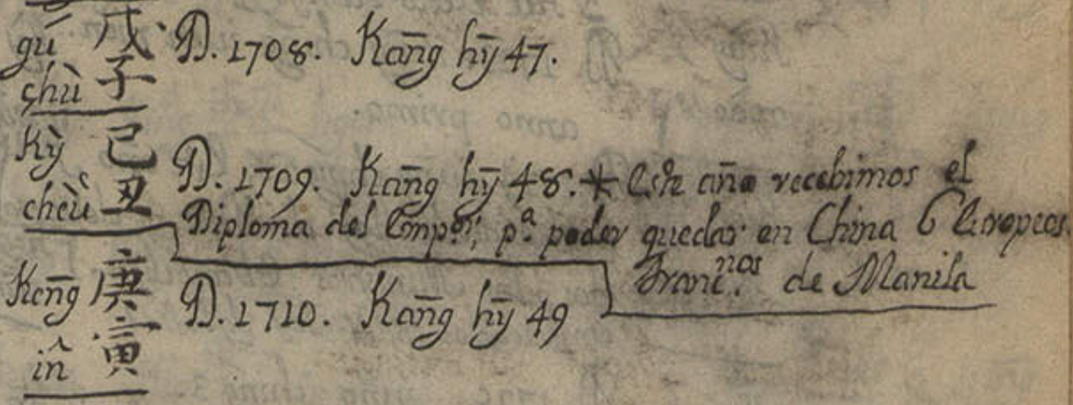 gú chù 戊子 D. 1708. Kāng hȳ 47.
Kỳ cheù 已丑 D. 1709. Kāng hȳ 48. * Este año recebimos el
Diploma del Emp.or, p.a poder quedar en China 6 Europeos
Franc.nos de Manila
Kēng în 庚寅 D. 1710. Kāng hȳ 49